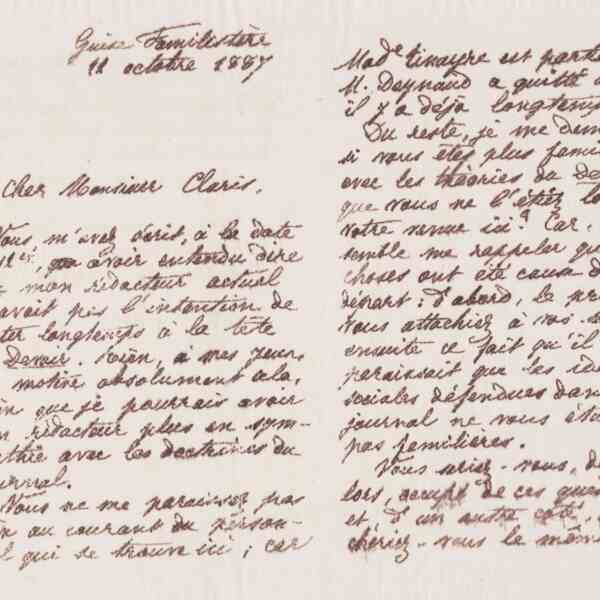 Guise Familistère
11 octobre 1887
Cher Monsieur Claris,
Vous m'avez écrit, à la date
avoir entendu dire
mon rédacteur actuel
avait pas l'intention de
ter longtemps à la tête
Devoir. Rien, à mes yeux,
motive absolument cela,
que je pourrais avoir
rédacteur plus en sym-
thie avec les doctrines du
urnal.
Vous ne me paraissez pas
en au courant du person-
l qui se trouve ici ; car
Made Tinayre est parti
M. Deynaud a quitté
il y a déjà longtemps
Du reste, je me dem
si vous êtes plus fami
avec les théories du De
que vous ne l'étiez lo
votre venue ici ? Car,
semble me rappeler qu
choses ont été cause d
départ : d'abord, le pr
vous attachiez à vos
ensuite ce fait qu'il
paraissait que les idé
sociales défendues dan
journal ne vous éta
pas familières.
Vous seriez-vous, de
lors, occupé de ces ques
et d'un autre côté,
chériez-vous le mêm